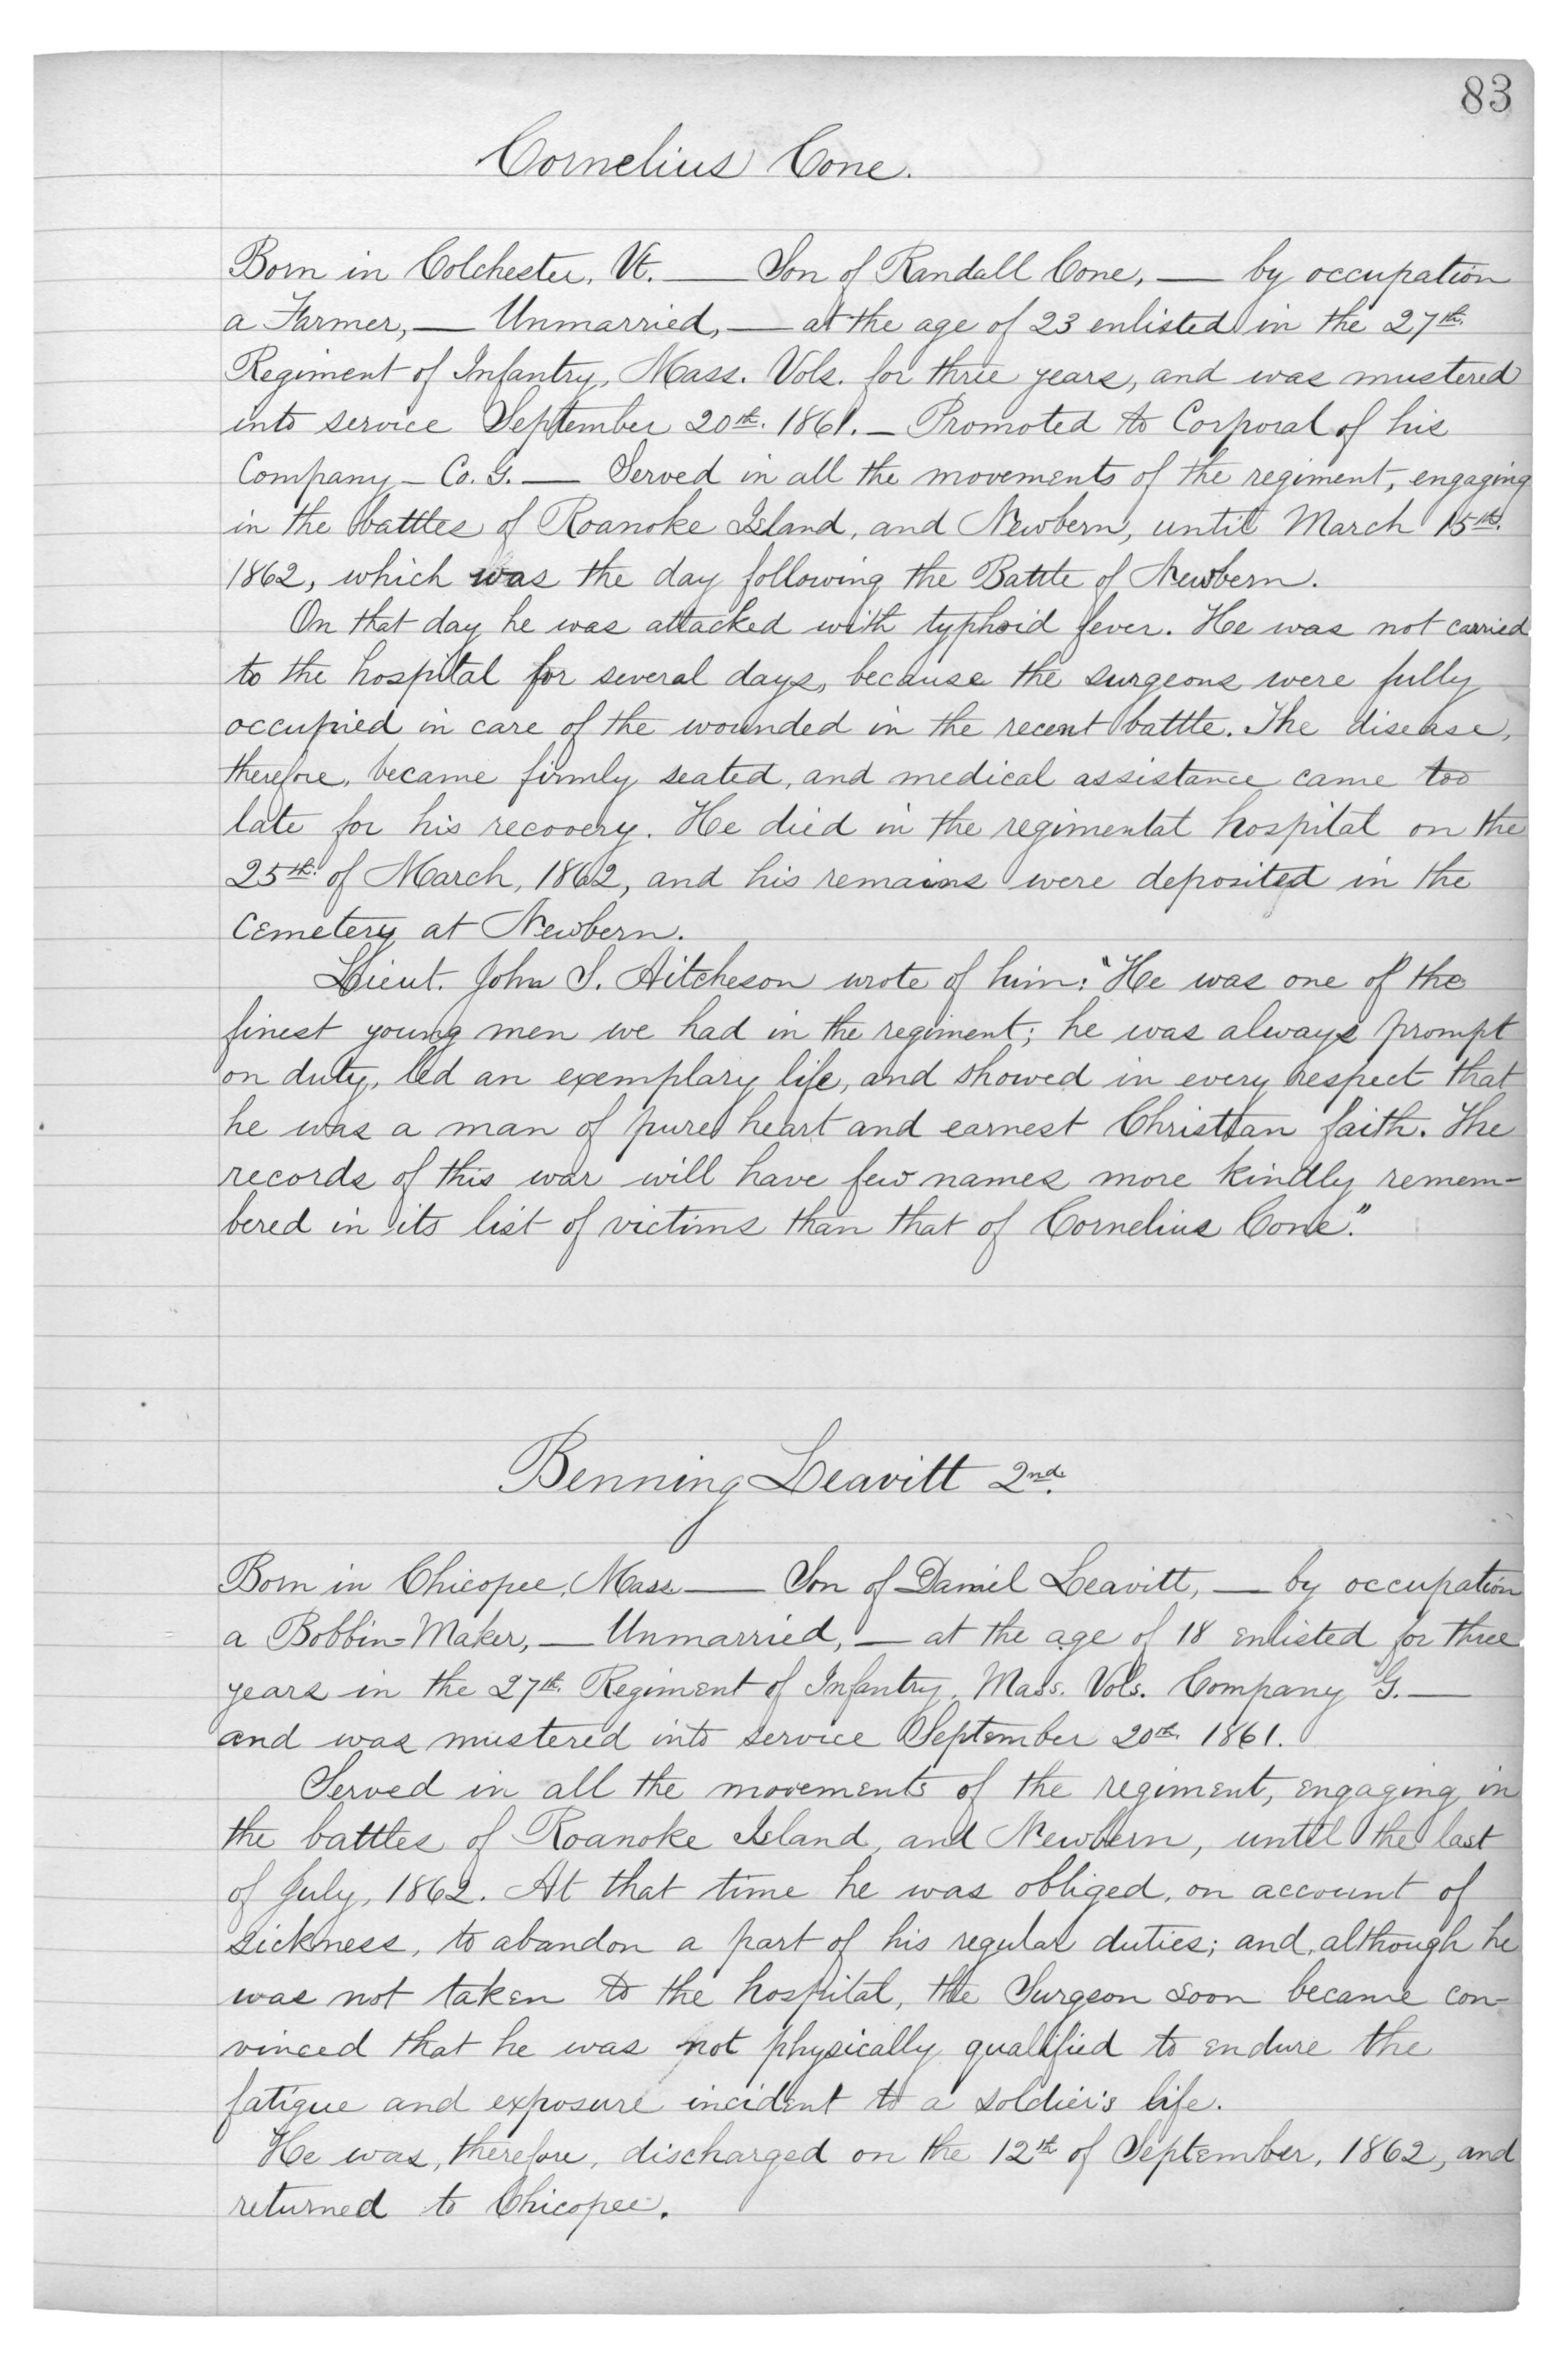 83
Cornelius Cone.
Born in Colchester, Vt. — Son of Randall Cone, — by occupation
a Farmer, — Unmarried, — at the age of 23 enlisted in the 27th.
Regiment of Infantry, Mass. Vols. for three years, and was mustered
into service September 20th. 1861. — Promoted to Corporal of his
Company — Co. G. — Served in all the movements of the regiment, engaging
in the battles of Roanoke Island, and Newbern, until March 15th.
1862, which was the day following the Battle of Newbern.
On that day he was attacked with typhoid fever. He was not carried
to the hospital for several days, because the surgeons were fully
occupied in care of the wounded in the recent battle. The disease,
therefore, became firmly seated, and medical assistance came too
late for his recovery. He died in the regimental hospital on the
25th. of March, 1862, and his remains were deposited in the
Cemetery at Newbern.
Lieut. John S. Aitcheson wrote of him: "He was one of the
finest young men we had in the regiment; he was always prompt
on duty, led an exemplary life, and showed in every respect that
he was a man of pure heart and earnest Christian faith. The
records of this war will have few names more kindly remem-
bered in its list of victims than that of Cornelius Cone."
Benning Leavitt 2nd.
Born in Chicopee, Mass — Son of Daniel Leavitt, — by occupation
a Bobbin=Maker, — Unmarried, — at the age of 18 enlisted for three
years in the 27th. Regiment of Infantry, Mass. Vols. Company G. —
and was mustered into service September 20th. 1861.
Served in all the movements of the regiment, engaging in
the battles of Roanoke Island, and Newbern, until the last
of July, 1862. At that time he was obliged, on account of
sickness, to abandon a part of his regular duties; and, although he
was not taken to the hospital, the Surgeon soon became con-
vinced that he was not physically qualified to endure the
fatigue and exposure incident to a soldier's life.
He was, therefore, discharged on the 12th of September, 1862, and
returned to Chicopee.